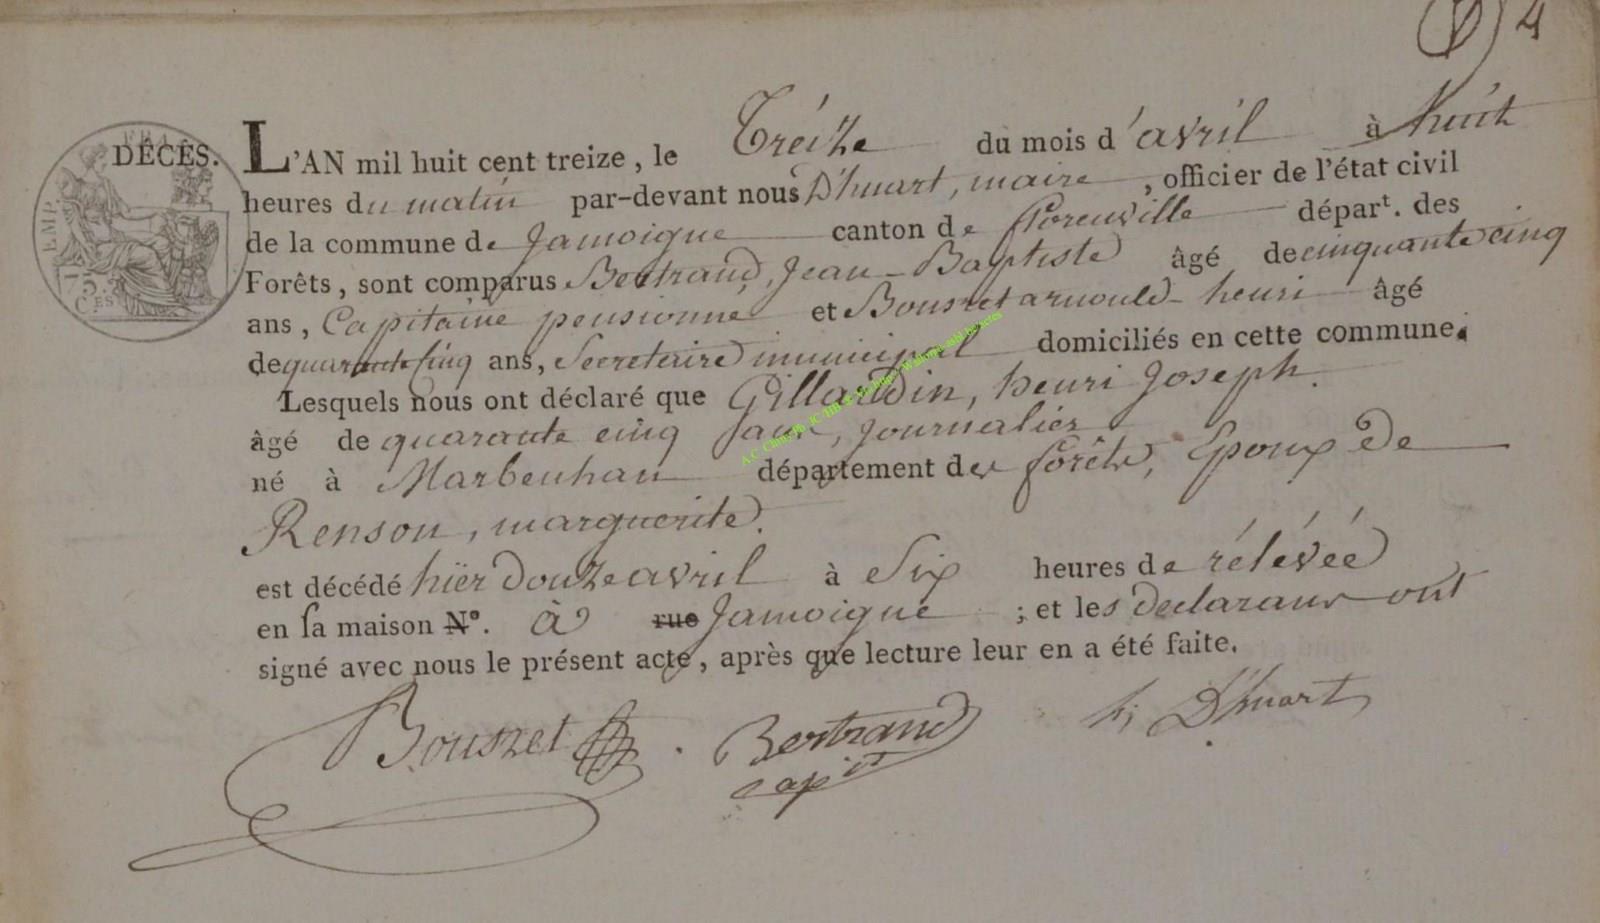 4
DÉCÈS. L'AN mil huit cent treize, le Tréize du mois d'avril à huit
heures du matin par-devant nous D'huart, maire, officier de l'état civil
de la commune de Jamoigne canton de florenville dépar^t. des
Forêts, sont comparus Bertrand, Jean-Baptiste âgé de cinquante cinq
ans, Capitaine pensionné et Bousret arnould-henri âgé
de quarante Cinq ans, Secretaire municipal domiciliés en cette commune.
Lesquels nous ont déclaré que Gillardin, henri Joseph.
âgé de quarante cinq ans, Journalier
né à Marbeuhan département des forêts, Epoux de
Renson, marguerite.
est décédé hïer douze avril à Six heures de rélévéé
en sa maison N°. à rue Jamoigne ; et les declarans ont
signé avec nous le présent acte, après que lecture leur en a été faite.
Bousret Bertrand h; D'huart
cap^it
EMP.
75.
C^ES